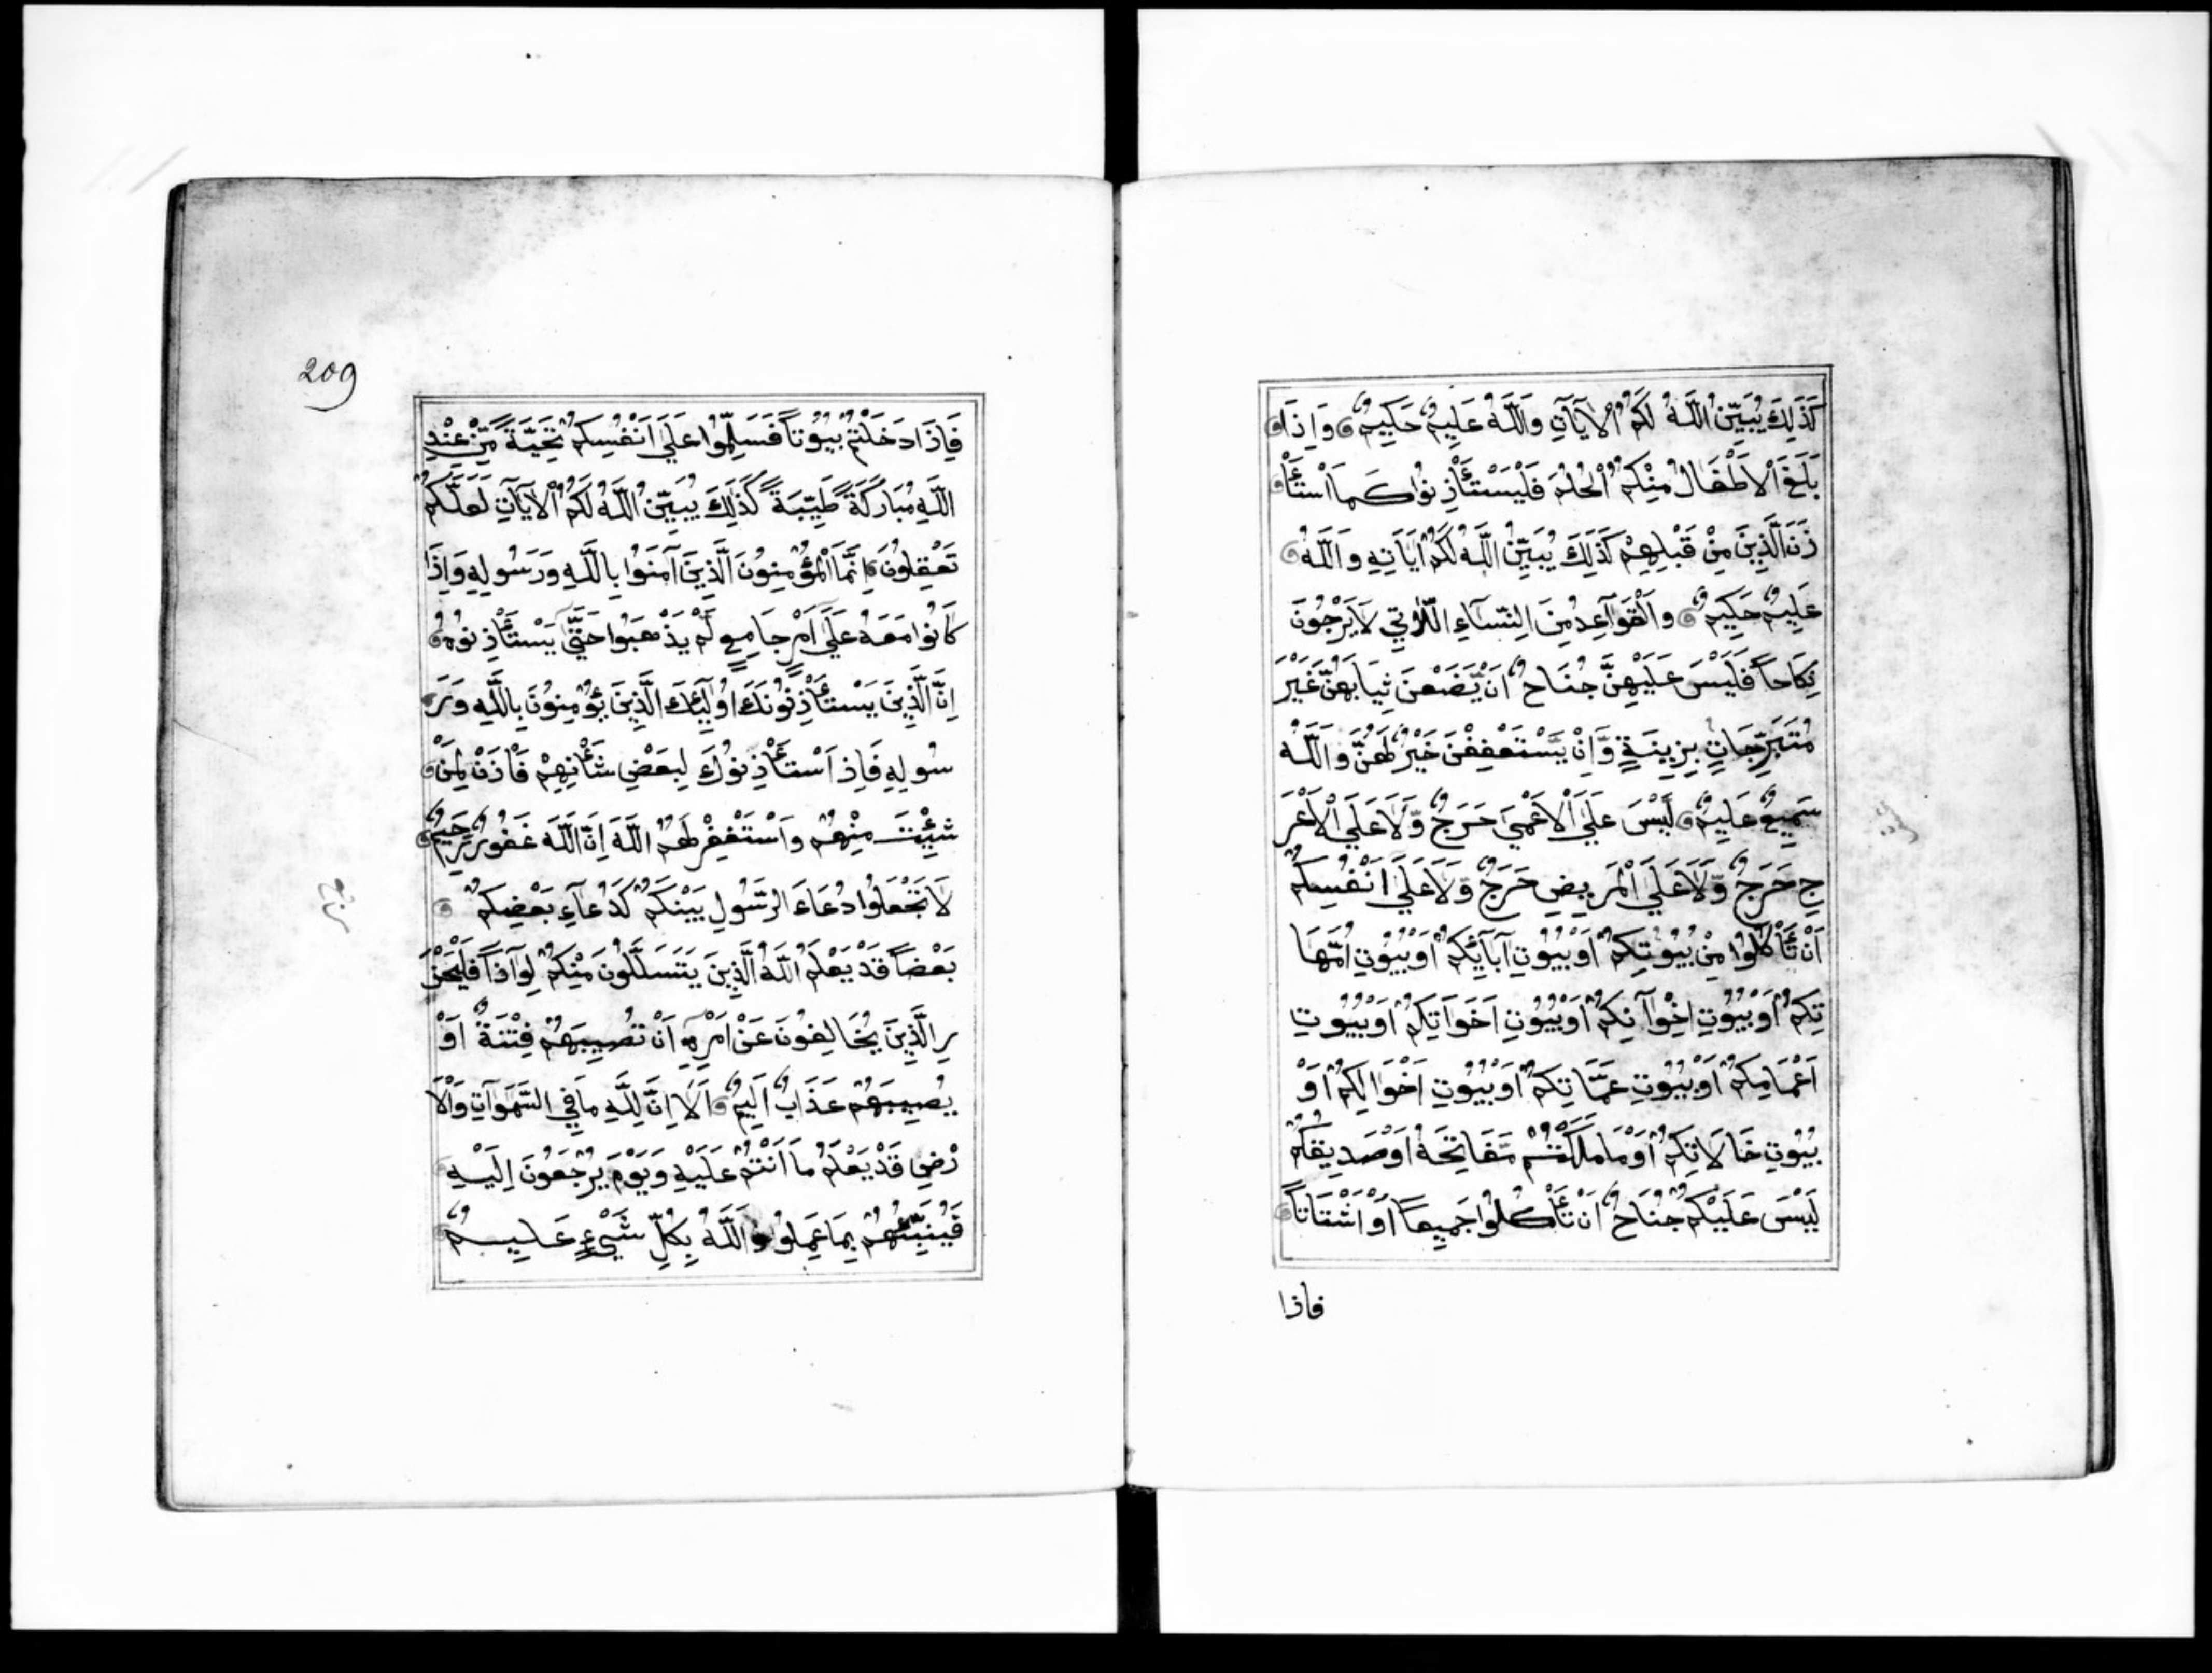 كَذَلِكَ يُبَيِّنُ اللَّهُ لَكُمُ الْآيَاتِ وَاللَّهُ عَلِيمٌ حَكِيمٌ وَإِذَا
بَلَغَ الْاَطْفَالُ مِنْكُمُ الْحُلُمَ فَلْيَسْتَأْذِنُوا كَمَا اسْتَأْ
ذَنَ الَّذِينَ مِنْ قَبْلِهِمْ كَذَلِكَ يُبَيِّنُ اللَّهُ لَكُمْ اٰيَاتِهِ وَاللَّهُ
عَلِيمٌ حَكِيمٌ وَالْقَوَاعِدُ مِنَ النِّسَاءِ اللَّاتِي لَا يَرْجُونَ
نِكَاحاً فَلَيْسَ عَلَيْهِنَّ جُنَاحٌ اَنْ يَّضَعْنَ ثِيَابَهُنَّ غَيْرَ
مُتَبَرِّجَاتٍ بِزِينَةٍ وَّاِنْ يَّسْتَعْفِفْنَ خَيْرٌ لَهُنَّ وَاللَّهُ
سَمِيعٌ عَلِيمٌ لَيْسَ عَلَى الْاَعْمَى حَرَجٌ وَّلَا عَلَى الْاَعْرَ
جِ حَرَجٌ وَّلَا عَلَى الْمَرِيضِ حَرَجٌ وَّلَا عَلَى اَنْفُسِكُمْ
اَنْ تَأْكُلُوا مِنْ بُيُوتِكُمْ اَوْ بُيُوتِ آبَائِكُمْ اَوْ بُيُوتِ اُمَّهَا
تِكُمْ اَوْ بُيُوتِ اِخْوَانِكُمْ اَوْ بُيُوتِ اَخَوَاتِكُمْ اَوْ بُيُوتِ
اَعْمَامِكُمْ اَوْ بُيُوتِ عَمَّاتِكُمْ اَوْ بُيُوتِ اَخْوَالِكُمْ اَوْ
بُيُوتِ خَالَاتِكُمْ اَوْ مَا مَلَكْتُمْ مَّفَاتِحَهُ اَوْ صَدِيقِكُمْ
لَيْسَ عَلَيْكُمْ جُنَاحٌ اَنْ تَأْكُلُوا جَمِيعاً اَوْ اَشْتَاتاً
فاذا
209
فَاِذَا دَخَلْتُمْ بُيُوتاً فَسَلِّمُوا عَلَى اَنْفُسِكُمْ تَحِيَّةً مِّنْ عِنْدِ
اللَّهِ مُبَارَكَةً طَيِّبَةً كَذَلِكَ يُبَيِّنُ اللَّهُ لَكُمُ الْآيَاتِ لَعَلَّكُمْ
تَعْقِلُونَ اِنَّمَا الْمُؤْمِنُونَ الَّذِينَ آمَنُوا بِاللَّهِ وَرَسُولِهِ وَاِذَا
كَانُوا مَعَهُ عَلَى اَمْرٍ جَامِعٍ لَّمْ يَذْهَبُوا حَتَّى يَسْتَأْذِنُوهُ
اِنَّ الَّذِينَ يَسْتَأْذِنُونَكَ اُولَٰئِكَ الَّذِينَ يُؤْمِنُونَ بِاللَّهِ وَرَ
سُولِهِ فَاِذَ اسْتَأْذَنُوكَ لِبَعْضِ شَأْنِهِمْ فَأْذَنْ لِمَنْ
شِئْتَ مِنْهُمْ وَاسْتَغْفِرْ لَهُمُ اللَّهَ اِنَّ اللَّهَ غَفُورٌ رَّحِيمٌ
لَا تَجْعَلُوا دُعَاءَ الرَّسُولِ بَيْنَكُمْ كَدُعَاءِ بَعْضِكُمْ
بَعْضاً قَدْ يَعْلَمُ اللَّهُ الَّذِينَ يَتَسَلَّلُونَ مِنْكُمْ لِوَاذاً فَلْيَحْذَ
رِ الَّذِينَ يُخَالِفُونَ عَنْ اَمْرِهِ اَنْ تُصِيبَهُمْ فِتْنَةٌ اَوْ
يُصِيبَهُمْ عَذَابٌ اَلِيمٌ اَلَا اِنَّ لِلَّهِ مَا فِي السَّمَوَاتِ وَالْاَ
رْضِ قَدْ يَعْلَمُ مَا اَنْتُمْ عَلَيْهِ وَيَوْمَ يُرْجَعُونَ اِلَيْهِ
فَيُنَبِّئُهُمْ بِمَا عَمِلُوا وَاللَّهُ بِكُلِّ شَيْءٍ عَلِيمٌ